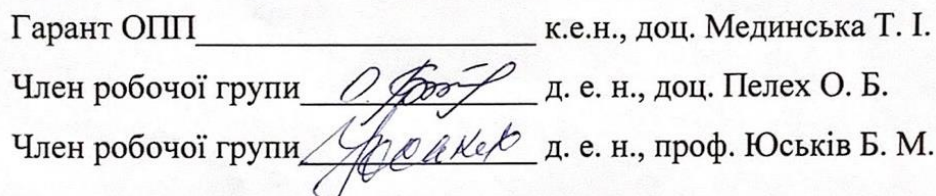 Гарант ОПП______________________ к.е.н., доц. Мединська Т. І.
Член робочої групи______________ д. е. н., доц. Пелех О. Б.
Член робочої групи______________ д. е. н., проф. Юськів Б. М.